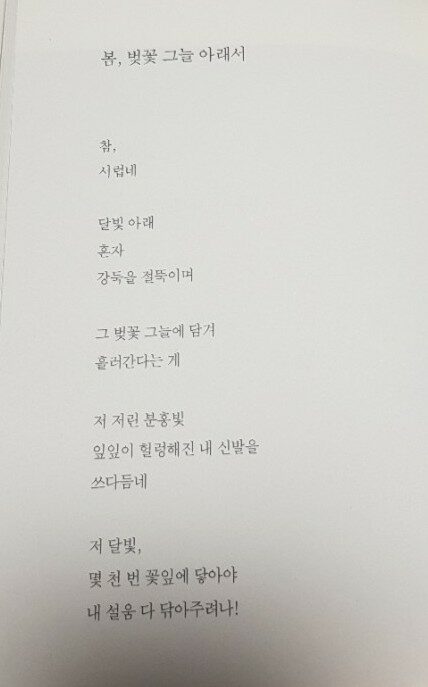 봄, 벚꽃 그늘 아래서
참,
시럽네
달빛 아래
혼자
강둑을 절뚝이며
그 벚꽃 그늘에 담겨
흘러간다는 게
저 저린 분홍빛
잎잎이 헐렁해진 내 신발을
쓰다듬네
저 달빛,
몇 천 번 꽃잎에 닿아야
내 설움 다 닦아주려나!